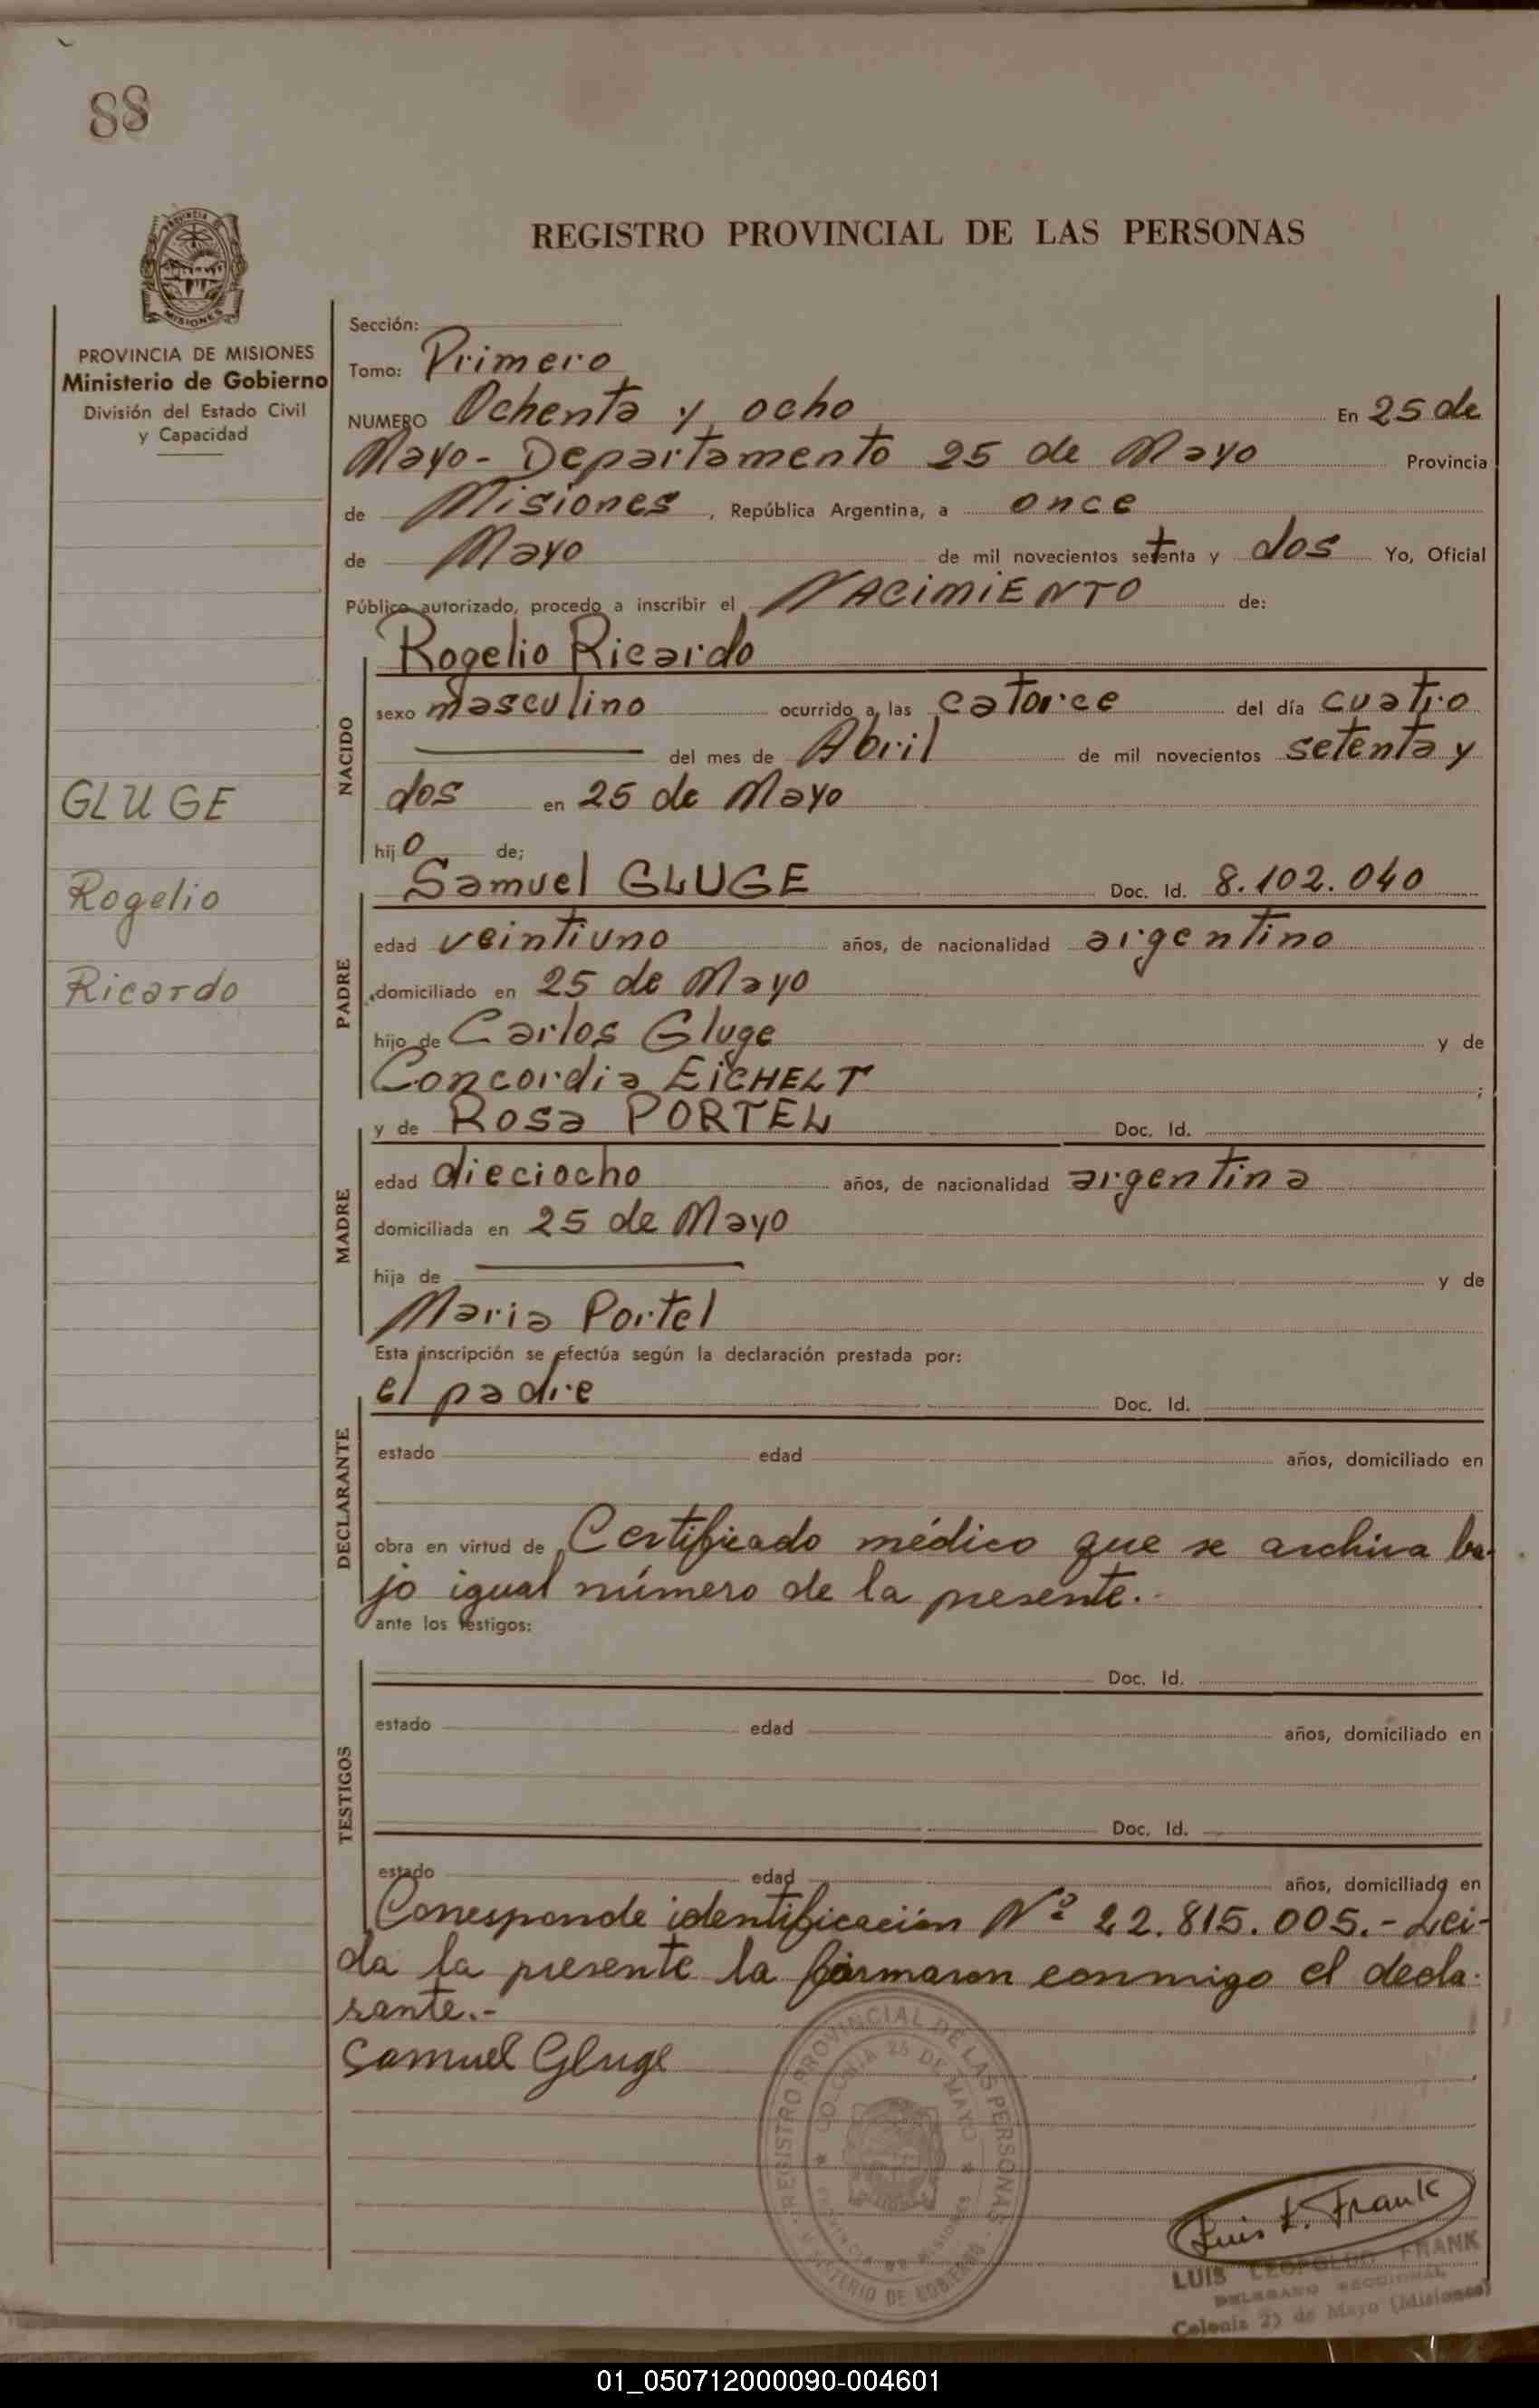 88
REGISTRO PROVINCIAL DE LAS PERSONAS
PROVINCIA
MISIONES
PROVINCIA DE MISIONES
Ministerio de Gobierno
División del Estado Civil
y Capacidad
Sección:
Tomo: Primero
NUMERO Ochenta y ocho En 25 de
Mayo - Departamento 25 de Mayo Provincia
de Misiones, República Argentina, a once
de Mayo de mil novecientos setenta y dos Yo, Oficial
Público autorizado, procedo a inscribir el NACIMIENTO de:
NACIDO
Rogelio Ricardo
sexo masculino ocurrido a las catorce del día cuatro
del mes de Abril de mil novecientos setenta y
dos en 25 de Mayo
hijo de;
GLUGE
Rogelio
Ricardo
PADRE
Samuel GLUGE Doc. Id. 8.102.040
edad veintiuno años, de nacionalidad argentino
domiciliado en 25 de Mayo
hijo de Carlos Gluge y de
Concordia EICHELT ;
MADRE
y de Rosa PORTEL Doc. Id.
edad dieciocho años, de nacionalidad argentina
domiciliada en 25 de Mayo
hija de y de
Maria Portel
Esta inscripción se efectúa según la declaración prestada por:
DECLARANTE
el padre Doc. Id.
estado edad años, domiciliado en
obra en virtud de Certificado médico que se archiva ba-
jo igual número de la presente.-
ante los testigos:
TESTIGOS
Doc. Id.
estado edad años, domiciliado en
Doc. Id.
estado edad años, domiciliado en
Corresponde identificación Nº 22.815.005.- Lei-
da la presente la firmaron conmigo el decla-
rante.-
Samuel Gluge
REGISTRO PROVINCIAL DE LAS PERSONAS
COLONIA 25 DE MAYO
PROVINCIA DE MISIONES
MINISTERIO DE GOBIERNO
Luis L. Frank
LUIS LEOPOLDO FRANK
DELEGADO SECCIONAL
Colonia 25 de Mayo (Misiones)
01_050712000090-004601